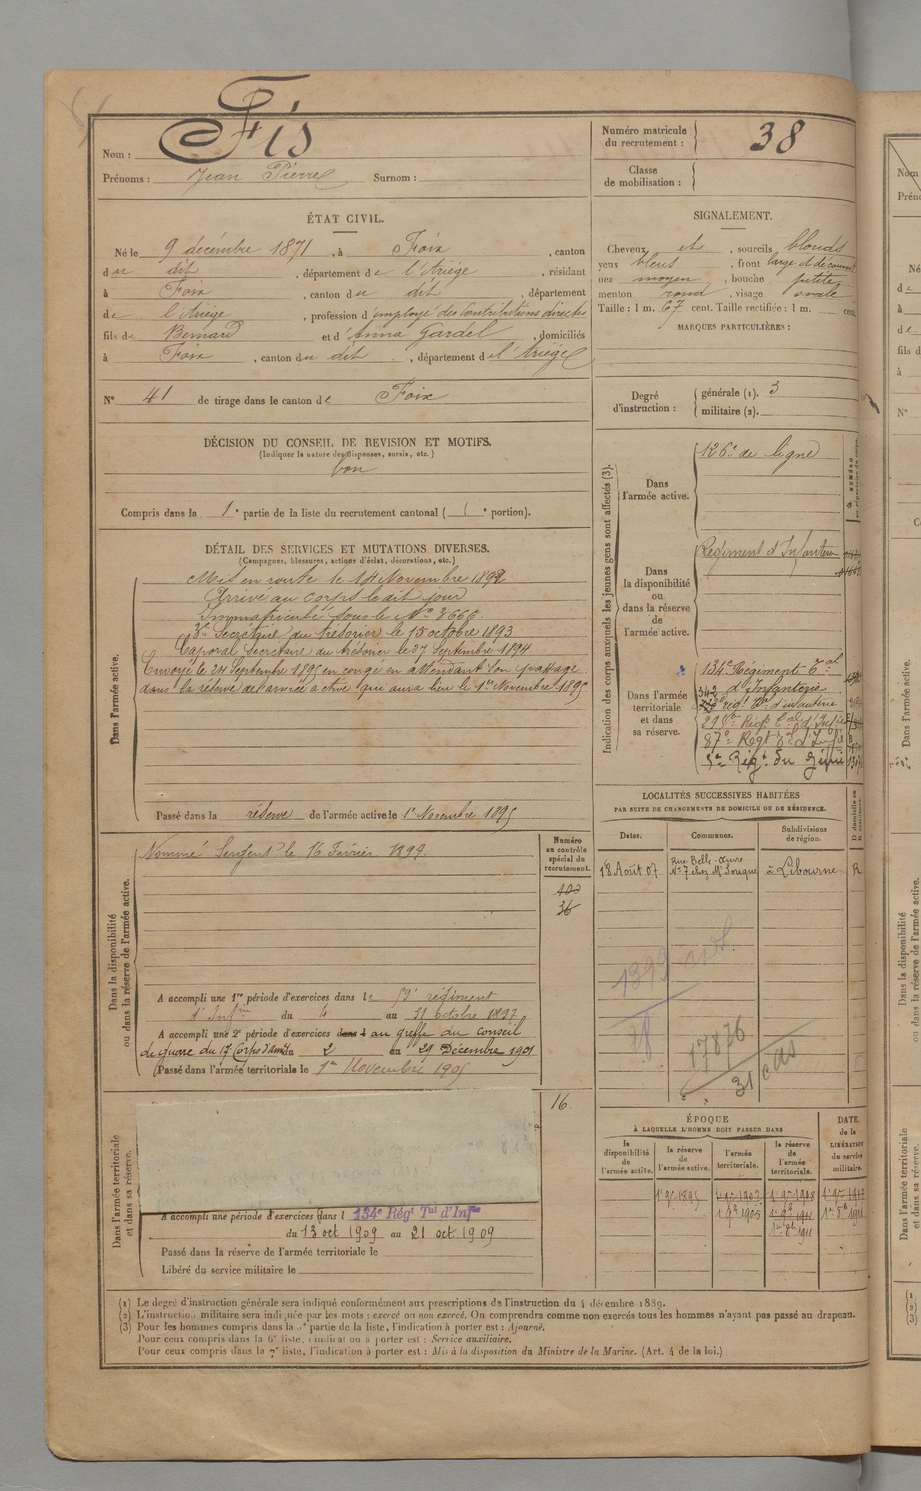 Nom : Fis
Prénoms : Jean Pierre Surnom :
ÉTAT CIVIL.
Né le 9 décembre 1871, à Foix, canton
du dit, département de l'Ariége, résidant
à Foix, canton du dit, département
de l'Ariége, profession d'employé des Contributions directes
fils de Bernard et d'Anna Gardel, domiciliés
à Foix, canton du dit, département de l'Ariège
N° 41 de tirage dans le canton de Foix
DÉCISION DU CONSEIL DE REVISION ET MOTIFS.
(Indiquer la nature des dispenses, sursis, etc.)
bon
Compris dans la 1e partie de la liste du recrutement cantonal ( e portion).
DÉTAIL DES SERVICES ET MUTATIONS DIVERSES.
(Campagnes, blessures, actions d'éclat, décorations, etc.)
Dans l'armée active.
Mis en route le 14 Novembre 1892
Arrivé au corps le dit jour
Immatriculé sous le N° 3666.
3e Secrétaire du trésorier le 15 octobre 1893
Caporal Secrétaire du trésorier le 27 Septembre 1894
Envoyé le 24 Septembre 1895 en congé en attendant son passage
dans la réserve de l'armée active qui aura lieu le 1er Novembre 1895
Passé dans la réserve de l'armée active le 1er Novembre 1895
Dans la disponibilité
ou dans la réserve de l'armée active.
Nommé Sergent le 16 Février 1899.
Numéro
au contrôle
spécial du
recrutement.
36
A accompli une 1re période d'exercices dans le 59e régiment
d'Infrie du 4 au 31 octobre 1897
A accompli une 2e période d'exercices dans l au greffe du conseil
de guerre du 17e Corps d'armée du 2 au 29 Décembre 1901
Passé dans l'armée territoriale le 1er Novembre 1905
Dans l'armée territoriale
et dans sa réserve.
16
A accompli une période d'exercices dans l 134e Régt Tal d'Infie
du 13 oct 1909 au 21 oct 1909
Passé dans la réserve de l'armée territoriale le
Libéré du service militaire le
Numéro matricule
du recrutement : 38
Classe
de mobilisation :
SIGNALEMENT.
Cheveux et, sourcils blonds
yeux bleus, front large et découvert
nez moyen, bouche petite
menton rond, visage ovale
Taille : 1 m. 67 cent. Taille rectifiée : 1 m. cent.
MARQUES PARTICULIÈRES :
Degré
d'instruction :
générale (1). 3
militaire (2).
Indication des corps auxquels les jeunes gens sont affectés (3).
Dans
l'armée active.
126e de ligne
Dans
la disponibilité
ou
dans la réserve
de
l'armée active.
Régiment d'Infanterie
Dans l'armée
territoriale
et dans
sa réserve.
134e Régiment Tal
d'Infanterie
342
regt Tal d'infanterie
Régt Tal d'Infie
87e Régt Tal d'Infie
5e Régt du Génie
LOCALITÉS SUCCESSIVES HABITÉES
PAR SUITE DE CHANGEMENTS DE DOMICILE OU DE RÉSIDENCE.
Dates. Communes. Subdivisions
de région.
18 Août 07 Rue Belle-
N° 7 chez Mr à Libourne R
1893
28
17876
31 cas
ÉPOQUE
À LAQUELLE L'HOMME DOIT PASSER DANS
la
disponibilité
de
l'armée active.
la réserve
de
l'armée active.
l'armée
territoriale.
la réserve
de
l'armée
territoriale.
DATE
de la
LIBÉRATION
du service
militaire.
(1) Le degré d'instruction générale sera indiqué conformément aux prescriptions de l'instruction du 4 décembre 1889.
(2) L'instruction militaire sera indiquée par les mots : exercé ou non exercé. On comprendra comme non exercés tous les hommes n'ayant pas passé au drapeau.
(3) Pour les hommes compris dans la 5e partie de la liste, l'indication à porter est : Ajourné.
Pour ceux compris dans la 6e liste, l'indication à porter est : Service auxiliaire.
Pour ceux compris dans la 7e liste, l'indication à porter est : Mis à la disposition du Ministre de la Marine. (Art. 4 de la loi.)